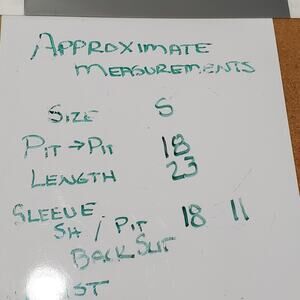 APPROXIMATE
MEASUREMENTS
SIZE S
PIT → PIT 18
LENGTH 23
SLEEVE
SH / PIT 18 11
BACK SLIT